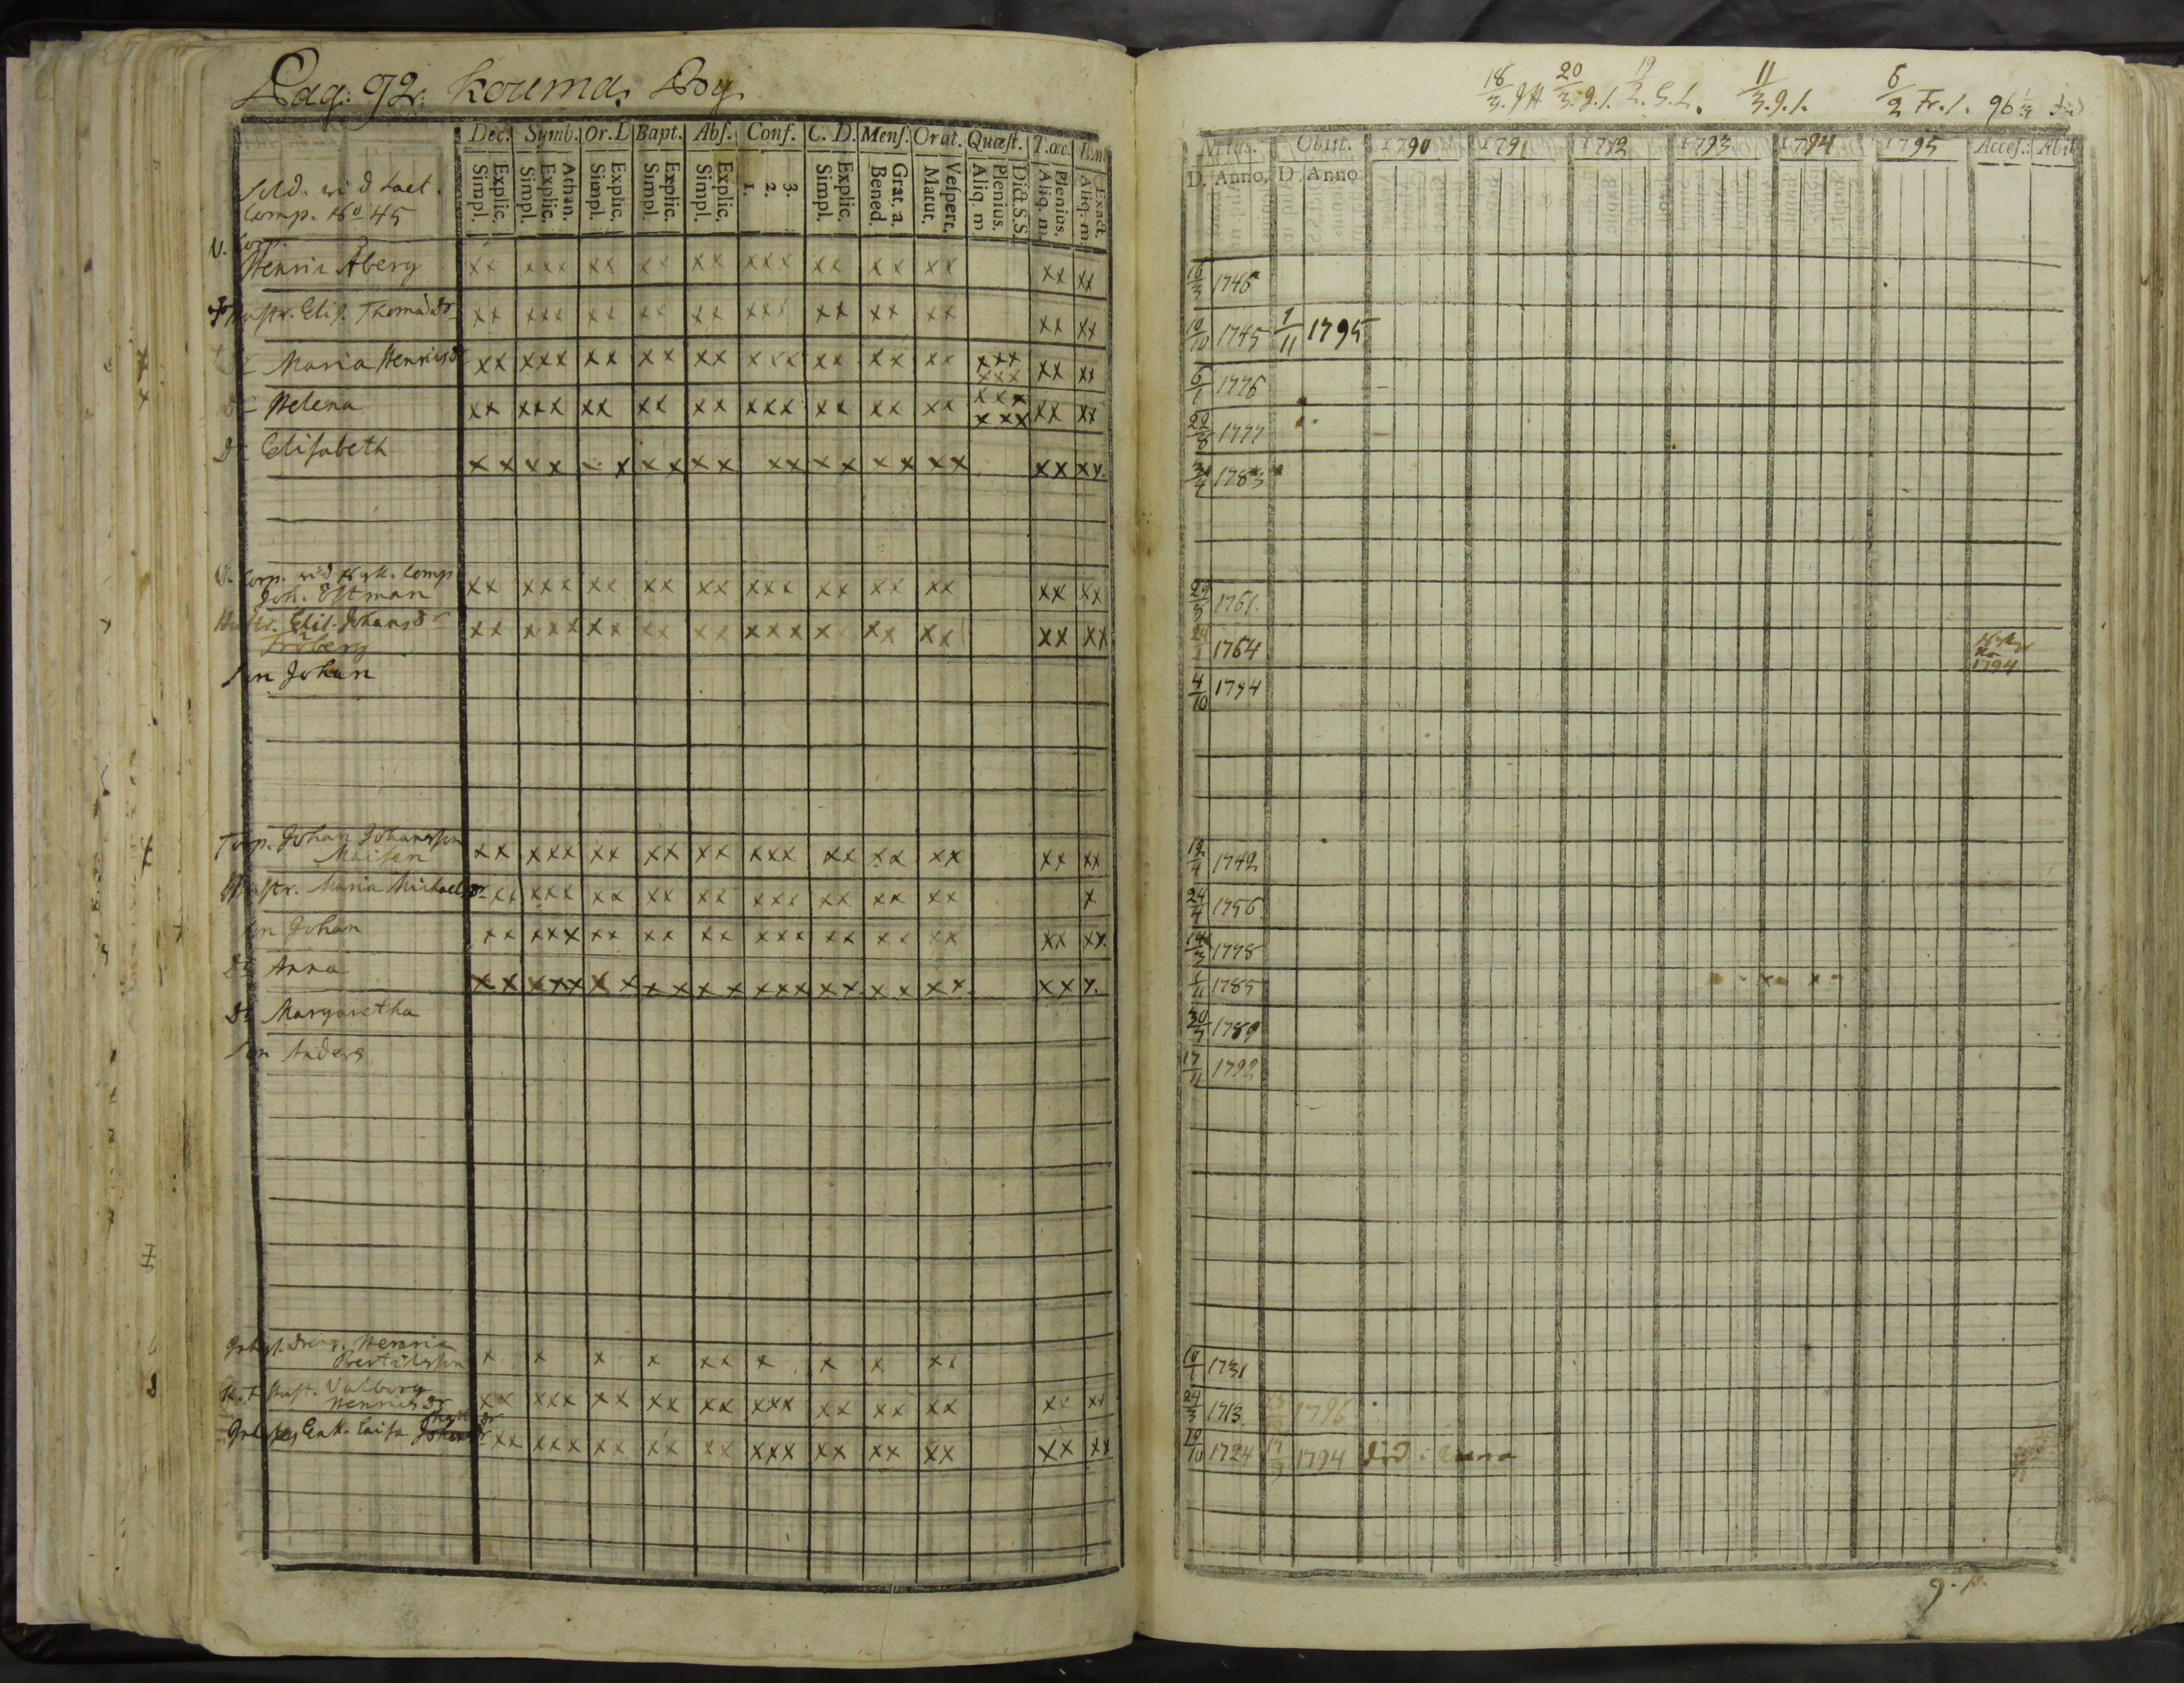 Pag: 92. Kouma By
Dec. Symb. Or. D Bapt. Abs. Conf. C. D. Mens. Orat. Quæst. T. œc.
Explic. Simpl. Athan. Explic. Simpl. Explic. Simpl. Explic. Simpl. Explic. Simpl. 3. 2. 1. Explic. Simpl. Grat. a. Bened. Vespert. Matut. Dict. S.S. Plenius. Aliq. m Plenius. Aliq. m Exact. Aliq. m.
Sold. wid Lael.
Comp. No 45
V. Corp.
Henric Åberg xx xxx xx xx xx xxx xx xx xx xx xx
Hustr. Elis. Thomædr xx xxx xx xx xx xxx xx xx xx xx xx
Dr Maria Henricsdr xx xxx xx xx xx xxx xx xx xx xxx xxx xx xx
Dr Helena xx xxx xx xx xx xxx xx xx xx xxx xxx xx xx
Dr Elisabeth xx xx xx xx xx xx xx xx xx xx xx.
V. Corp. wid Nyk. Comp
Joh. Östman xx xxx xx xx xx xxx xx xx xx xx xx
Hustr. Elis. Johansdr xx xxx xx xx xx xxx x xx xx xx xx
Fröberg
Son Johan
Torp. Johan Johansson
xx xxx xx xx xx xxx xx xx xx xx xx
Hustr. Maria Michaelsdr xx xxx xx xx xx xxx xx xx xx x
Son Johan xx xxx xx xx xx xxx xx xx xx xx xx
Dr Anna xx xxx xx xx xx xxx xx xx xx xx x.
Dr Margaretha
Son Anders
Drang. Henric
Bertilsson x x x x xx x x x xx
Hust. Valborg
Henricsdr xx xxx xx xx xx xxx xx xx xx xx xx
Enk. Caisa xx xxx xx xx xx xxx xx xx xx xx xx
18/3. 20/3. g. l. 19/2. 11/3. g. l. 6/2 Fr. l. 96
Natus. Obiit. 1790 1791 1792 1793 1794 1795 Acces. Abit
D. Anno. D. Anno
16/3 1746
10/10 1745 1/11 1795
6/1 1776
22/8 1777
1783
29/5 1761.
1764
1794
4/10 1794
12/4 1742
24/4 1756
14/3 1778
1/11 1785
30/7 1789
17/11 1792
10/1 1731
24/3 1713 1796
19/10 1724 1794
g. p.